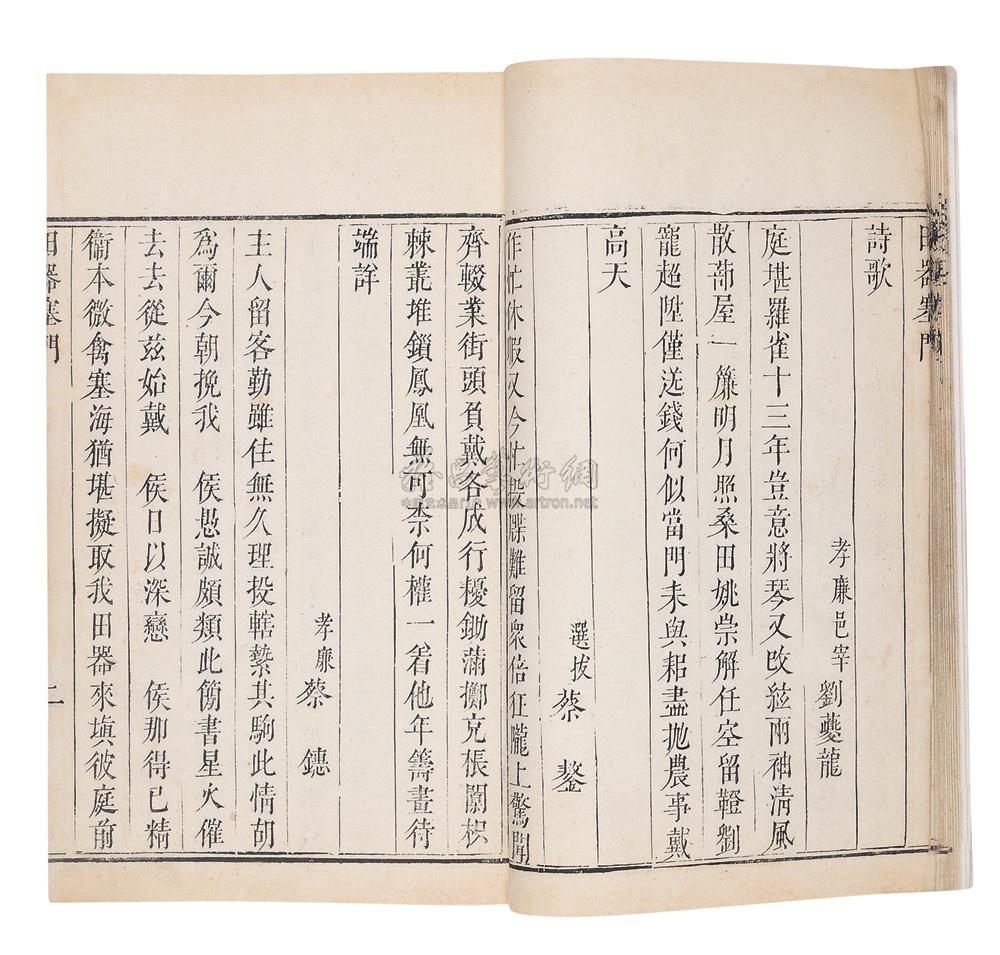 田器塞門
詩歌
孝廉邑宰 劉夔龍
庭堪羅雀十三年豈意將琴又改絃兩袖清風
散蔀屋一簾明月照桑田姚崇解任空留鞾劉
寵超陞僅送錢何似當門耒與耜盡拋農事戴
高天
選拔 蔡鏊
作忙休假又今十難留衆倍狂隴上驚聞
齊輟業街頭負戴各成行耰鋤滿擲充棖闑枳
棘叢堆鎖鳳凰無可柰何權一着他年籌畫待
端詳
孝廉 蔡鏸
主人留客勤雖住無久理投轄縶其駒此情胡
爲爾今朝挽我 侯愚誠頗類此簡書星火催
去去從兹始戴 侯日以深戀 侯那得已精
衞本微禽塞海猶堪擬取我田器來塡彼庭前
田器塞門
二
www.artron.net